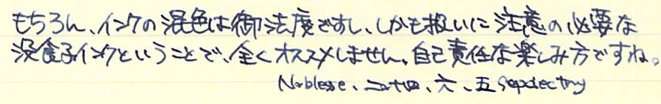 もちろん、インクの混色は御法度ですし、しかも扱いに注意の必要な
没食子インクということで、全くオススメしません。自己責任な楽しみ方ですね。
Noblesse、二十四、六、五